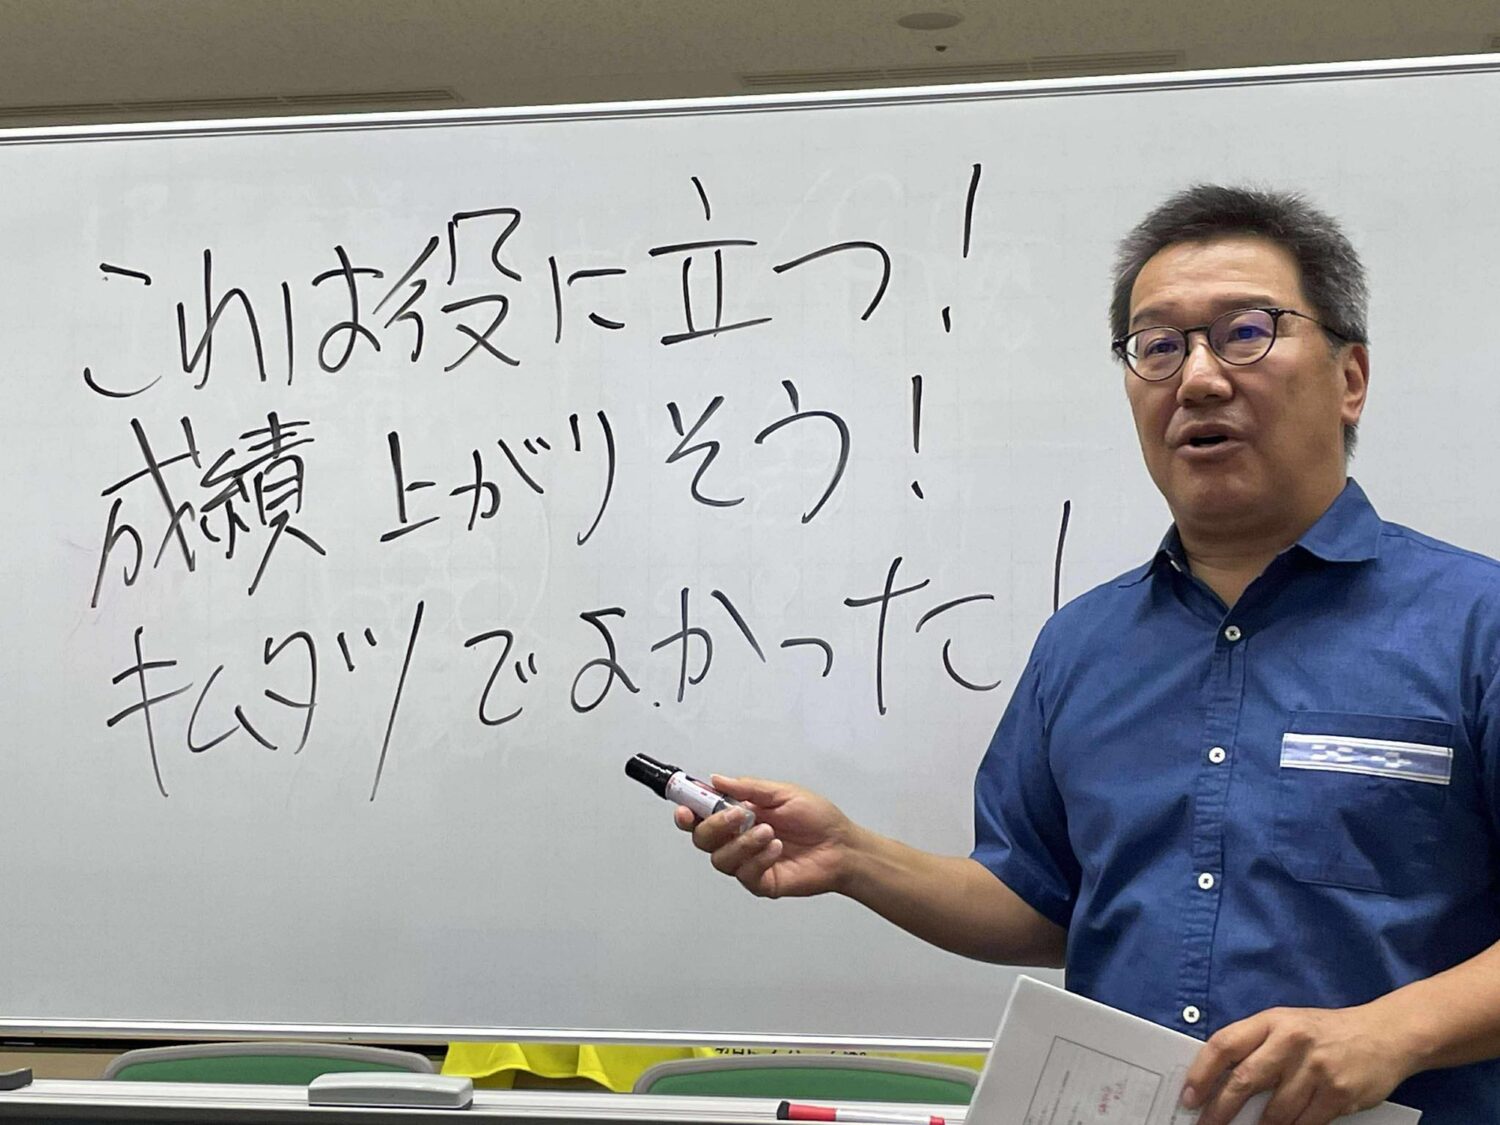 これは役に立つ!
成績上がりそう!
キムタツでよかった!